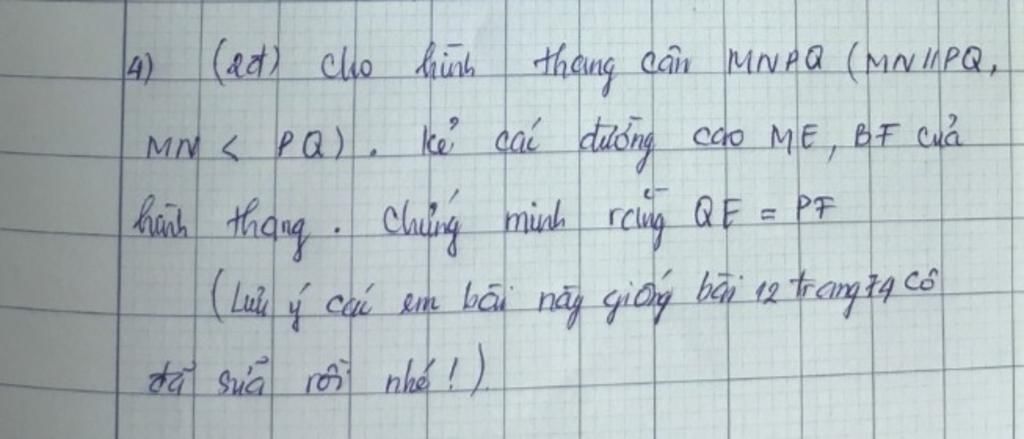 4) (2đ) Cho hình thang cân MNPQ (MN//PQ,
MN < PQ). Kẻ các đường cao ME, BF của
hình thang. Chứng minh rằng QE = PF
(Lưu ý các em bài này giống bài 12 trang 74 cô
đã sửa rồi nhé!).